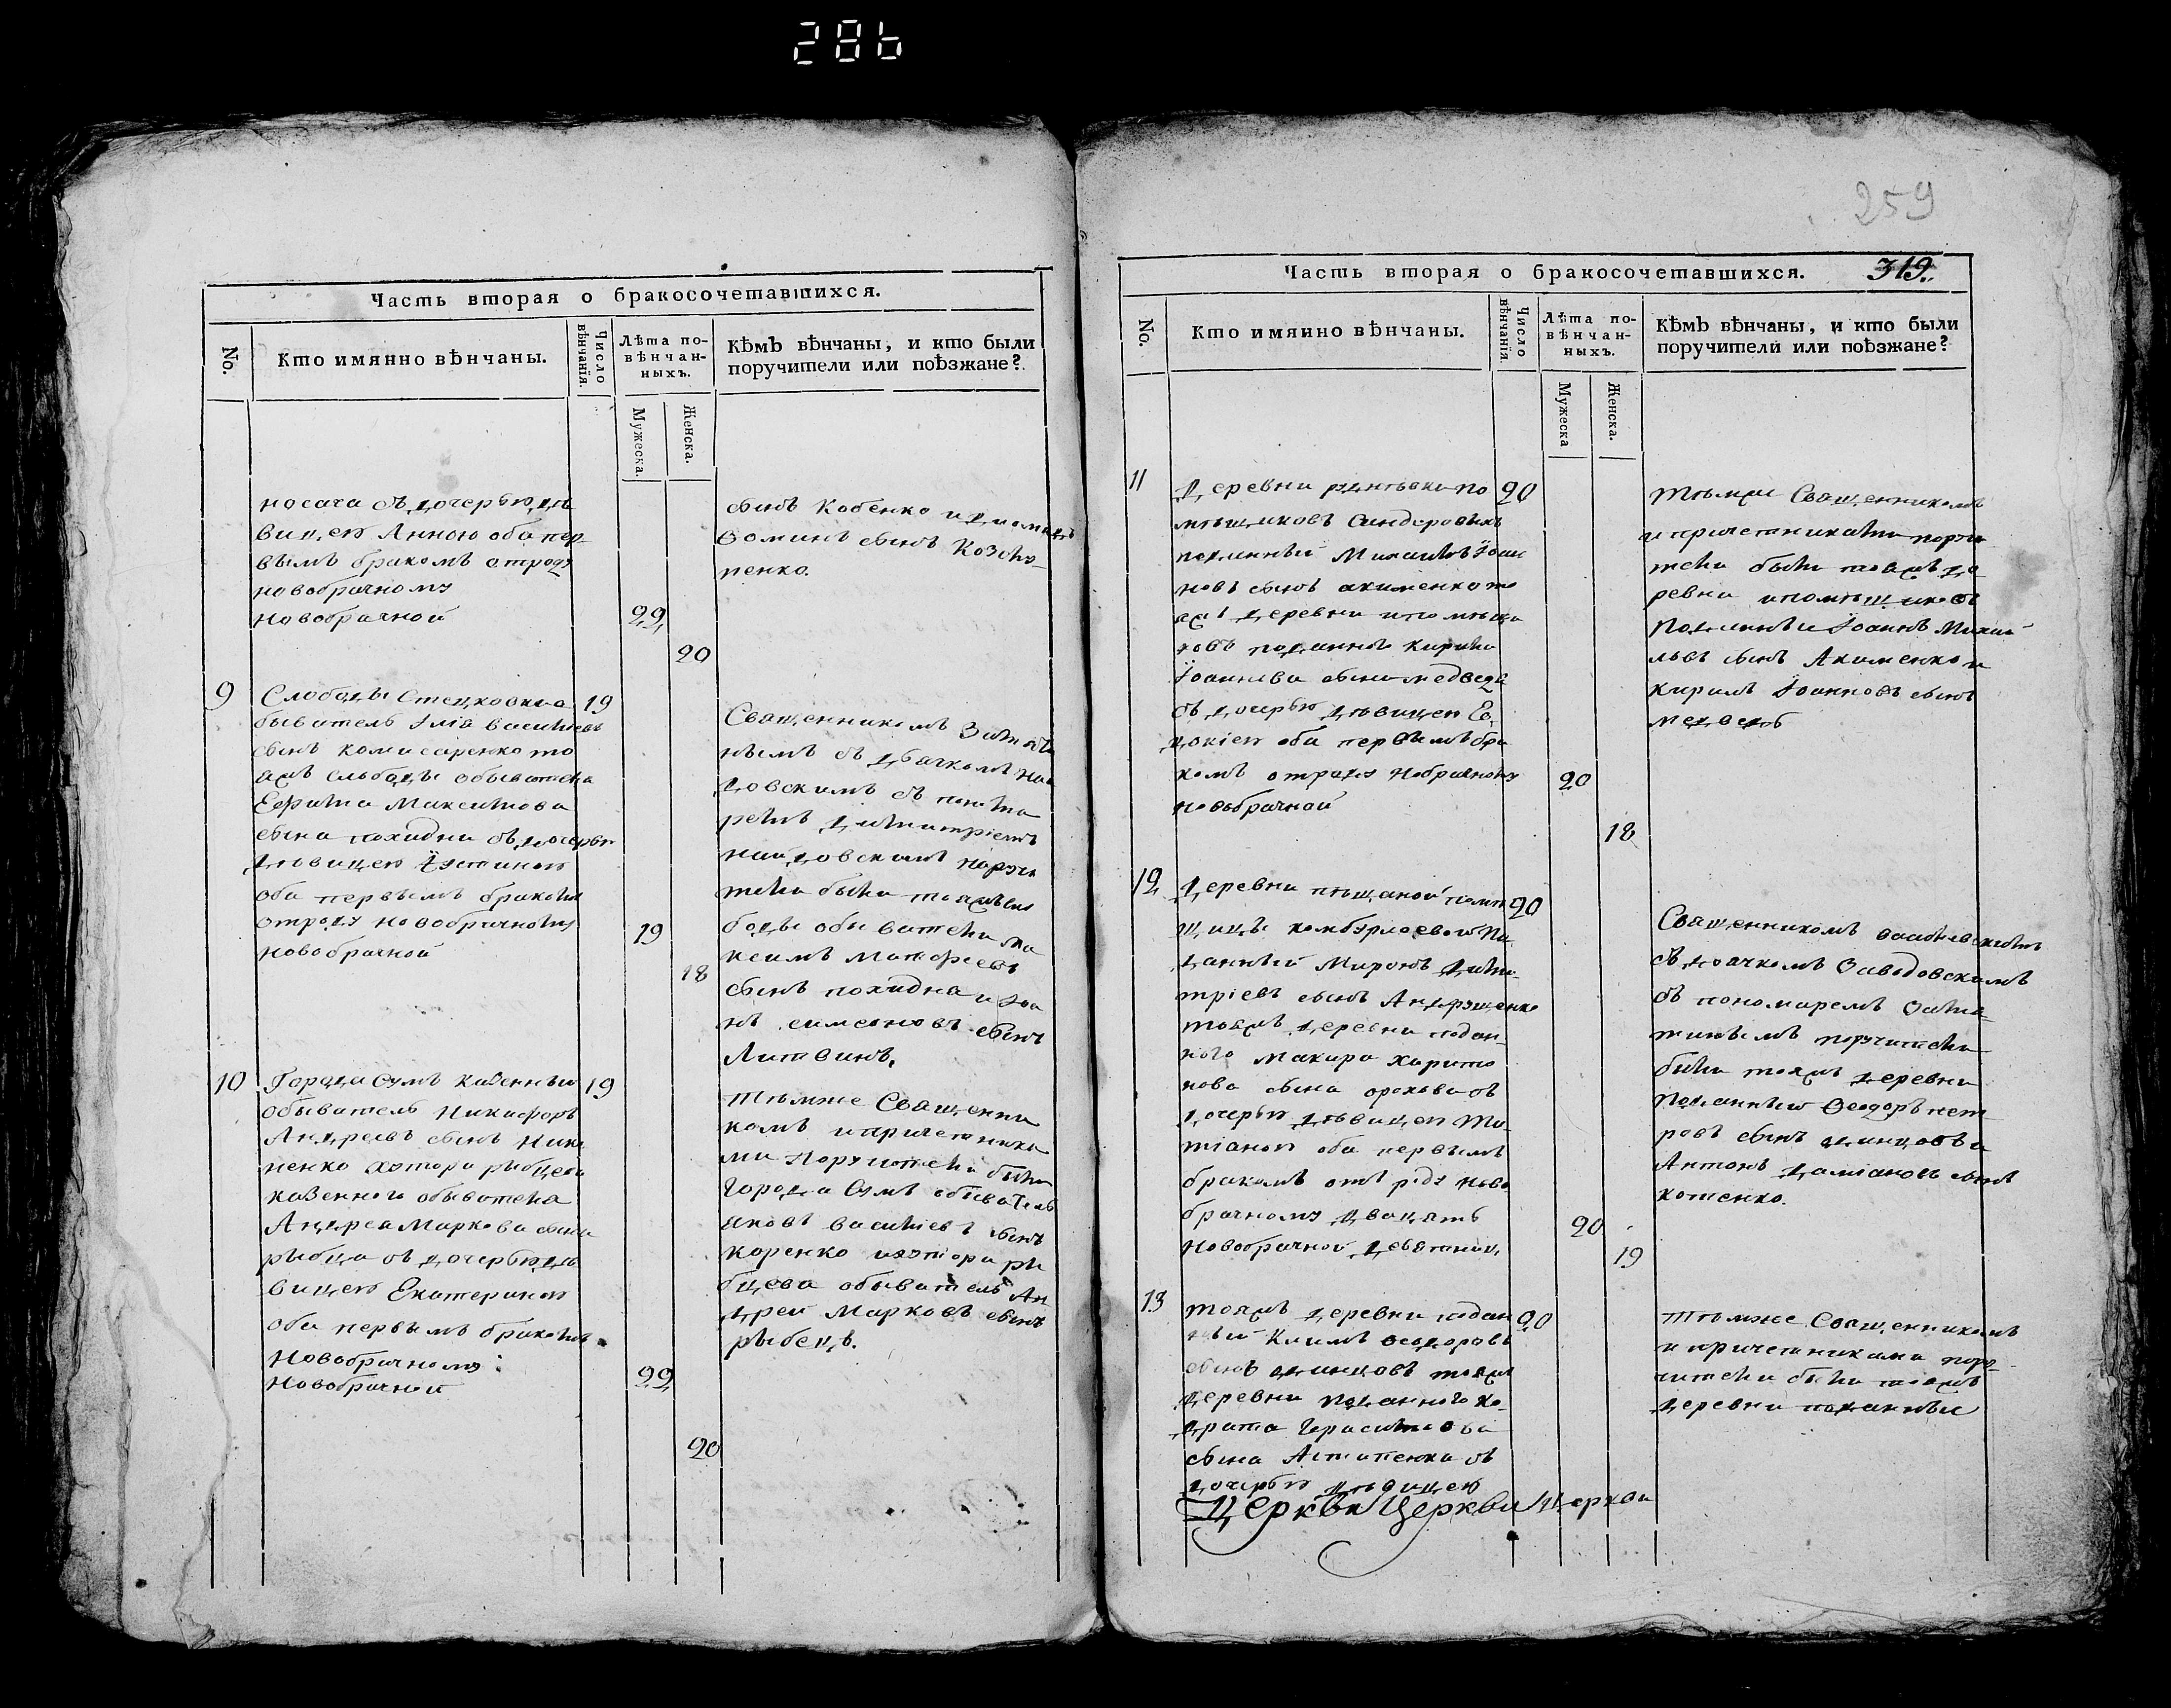 286
Часть вторая о бракосочетавшихся.
No.
Кто имянно вѣнчаны.
Число вѣнчанія.
Лѣта по-
вѣнчан-
ныхъ.
Мужеска.
Женска.
Кѣмъ вѣнчаны, и кто были
поручители или поѣзжане?
носача съ дочерью дѣ
вицею Анною оба пер
вымъ бракомъ отроду
новобрачному
новобрачной
22
20
сынъ Кобенко
Фоминъ сынъ
ненко.
9
Слободы Стецковки о 19
быватель Iлія василіевъ
сынъ комисаренко то
яжъ слободы обывателя
Ефима Максимова
сына похидни съ дочерью
дѣвицею Iустиною
оба первымъ бракомъ
отроду новобрачному
новобрачной
19
18
Священникомъ
нымъ съ дьячкомъ
довскимъ съ понома
ремъ Димитріемъ
поручи
тели были тояжъ сло
боды обыватели ма
ксимъ Матфеевъ
сынъ похидна и Iоа
нъ симеоновъ сынъ
Литвинъ.
10
Города Сумъ казенный 19
обыватель Никифоръ
Андреевъ сынъ Ники
ненко хутора рыбцева
казенного обывателя
Андрея Маркова сына
рыбца съ дочерью дѣ
вицею Екатериною
оба первымъ бракомъ
Новобрачному
Новобрачной
22
20
Тѣмже Священни
комъ и причетника
ми Поручители были
города Сумъ обыватель
яковъ василіевъ сынъ
коренко ихутора ры
бцева обыватель Ан
дрей Марковъ сынъ
рыбецъ.
259
Часть вторая о бракосочетавшихся.
319.
No.
Кто имянно вѣнчаны.
Число вѣнчанія.
Лѣта по-
вѣнчан-
ныхъ.
Мужеска
Женска.
Кѣмъ вѣнчаны, и кто были
поручители или поѣзжане?
11
Деревни по 20
мѣщиковъ
подданный Михаилъ Iоан
новъ сынъ акименко то
яжъ деревни и помѣщи
ковъ подданного Кирила
Iоаннова сына медведя
съ дочерью дѣвицею Ев
докіею оба первымъ бра
комъ отроду нобрачному
новобрачной
20
18
тѣмже Священникомъ
и причетниками поручи
тели были тояжъ де
ревни и помѣщиковъ
Подданные Iоаннъ Михаи
ловъ сынъ Акименко и
Кирилъ Iоанновъ сынъ
медведь
12
Деревни пѣщаной помѣ 20
щицы комбурлеевой по
данный Миронъ Дими
тріевъ сынъ Андрущенко
тояжъ деревни подан
ного Макара харито
нова сына орехова съ
дочерью дѣвицею Та
тіаною оба первымъ
бракомъ отъ роду ново
брачному двацять
Новобрачной девятнац.
20
19
Священникомъ
съ дьячкомъ Заводовскимъ
съ пономаремъ
поручители
были тояжъ деревни
Подданный Феодоръ пет
ровъ сынъ одинцовъ и
Антонъ даміановъ сынъ
котенко.
13
тояжъ деревни подан 20
ный Климъ феодоровъ
сынъ одинцовъ тояжъ
деревни подданного ко
драта Герасимова
сына Астапенка съ
дочерью дѣвицею
тѣмже Священникомъ
и причетниками пору-
чители были тояжъ
деревни подданные
Церкви Церкви Церкви